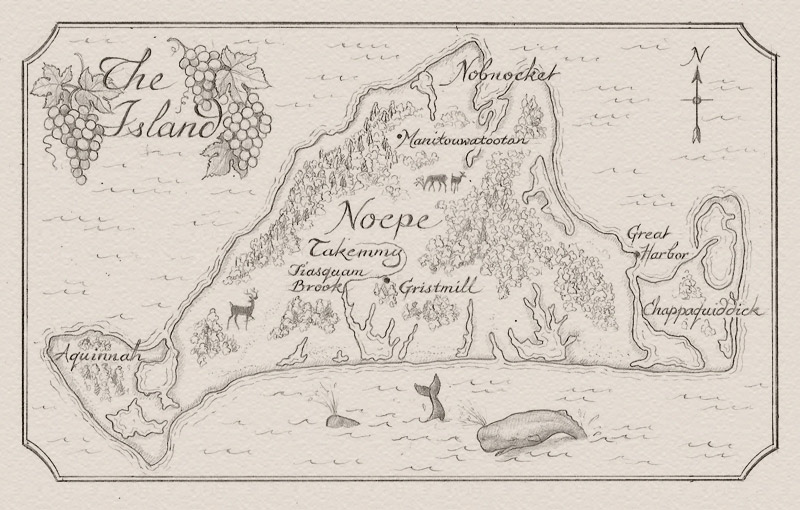 The
Island
N
Nobnocket
Manitouwatootan
Noepe
Takemmy
Tiasquam
Brook
Gristmill
Great
Harbor
Chappaquiddick
Aquinnah